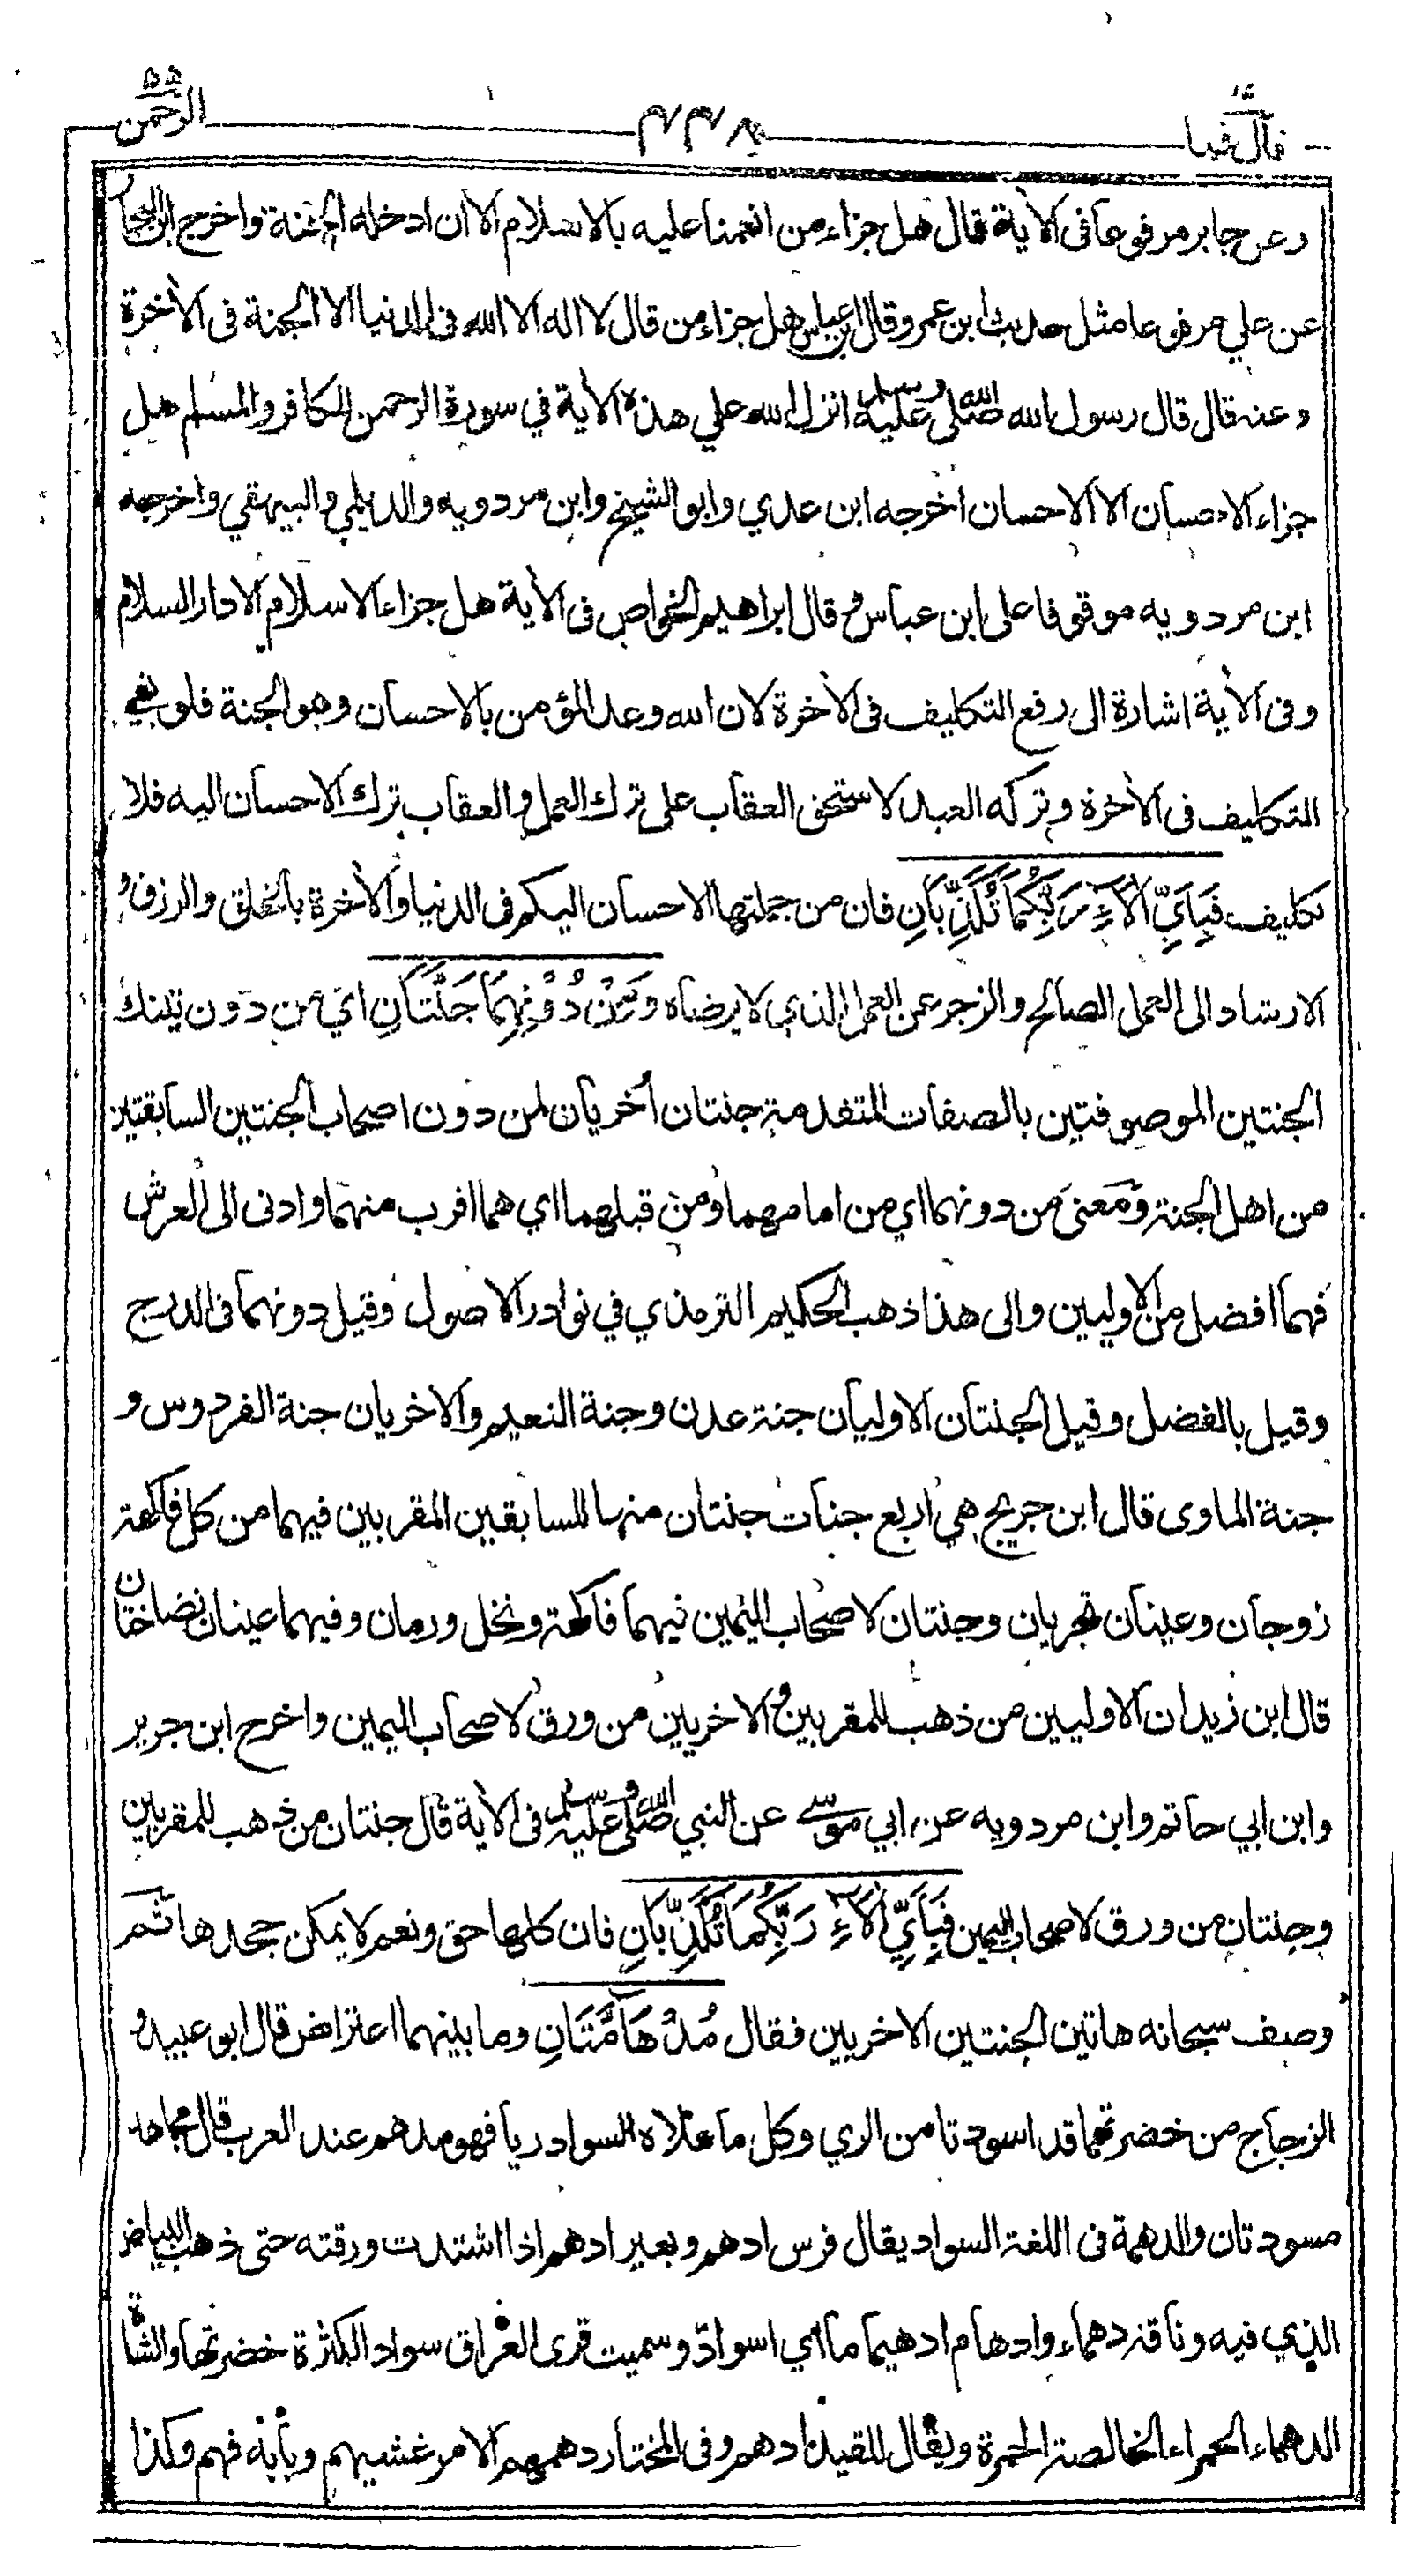 قال فما ٢٧
٤٣٨
الرحمن ٥٥
وعن جابر مرفوعا فى الآية قال هل جزاء من انعمنا عليه بالاسلام الا ان ادخله الجنة واخرج ابن النجار
عن علي مرفوعا مثل حديث ابن عمر وقال ابن عباس هل جزاء من قال لا اله الا الله فى الدنيا الا الجنة فى الآخرة
وعنه قال قال رسول الله صلى الله عليه وسلم انزل الله علي هذه الآية في سورة الرحمن للكافر والمسلم هل
جزاء الاحسان الا الاحسان اخرجه ابن عدي وابو الشيخ وابن مردويه والديلمي والبيهقي واخرجه
ابن مردويه موقوفا على ابن عباس وقال ابراهيم الخواص فى الآية هل جزاء الاسلام الا دار السلام
وفى الآية اشارة الى رفع التكليف فى الآخرة لان الله وعد المؤمن بالاحسان وهو الجنة فلو بقي
التكليف فى الآخرة وتركه العبد لاستحق العقاب على ترك العمل والعقاب ترك الاحسان اليه فلا
تكليف فَبِأَيِّ آلَاءِ رَبِّكُمَا تُكَذِّبَانِ فان من جملتها الاحسان اليكم فى الدنيا والآخرة بالخلق والرزق و
الارشاد الى العمل الصالح والزجر عن العمل الذي لا يرضاه وَمِنْ دُوْنِهِمَا جَنَّتَانِ اي من دون تينك
الجنتين الموصوفتين بالصفات المتقدمة جنتان أخريان لمن دون اصحاب الجنتين السابقتين
من اهل الجنة ومعنى من دونهما اي من امامهما ومن قبلهما اي هما اقرب منهما وادنى الى العرش
فهما افضل من الاوليين والى هذا ذهب الحكيم الترمذي في نوادر الاصول وقيل دونهما فى الدرج
وقيل بالفضل وقيل الجنتان الاوليان جنة عدن وجنة النعيم والاخريان جنة الفردوس و
جنة الماوى قال ابن جريج هي اربع جنات جنتان منها للسابقين المقربين فيهما من كل فاكهة
زوجان وعينان تجريان وجنتان لاصحاب اليمين فيهما فاكهة ونخل ورمان وفيهما عينان نضاختان
قال ابن زيد ان الاوليين من ذهب للمقربين والاخريين من ورق لاصحاب اليمين واخرج ابن جرير
وابن ابي حاتم وابن مردويه عن ابي موسى عن النبي صلى الله عليه وسلم فى الآية قال جنتان من ذهب للمقربين
وجنتان من ورق لاصحاب اليمين فَبِأَيِّ آلَاءِ رَبِّكُمَا تُكَذِّبَانِ فان كلها حق ونعم لا يمكن جحدها ثم
وصف سبحانه هاتين الجنتين الاخريين فقال مُدْهَامَّتَانِ وما بينهما اعتراض قال ابو عبيد و
الزجاج من خضرتهما قد اسودتا من الري وكل ما علاه السواد ريا فهو مدهم عند العرب قال مجاهد
مسودتان والدهمة فى اللغة السواد يقال فرس ادهم وبعير ادهم اذا اشتدت ورقته حتى ذهب البياض
الذي فيه وناقة دهماء وادهام ادهيماما اي اسواد وسميت قرى العراق سواد الكثرة خضرتها والشاة
الدهماء الحمراء الخالصة الحمرة ويقال للقيد ادهم وفى المختار دهمهم الامر غشيهم وبابه فهم وكذا